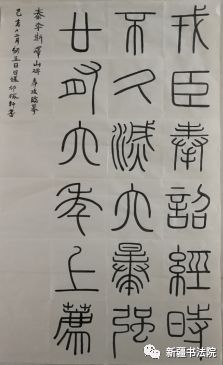 戎臣奉詔經時
不久滅六暴強
廿有六年上薦
秦李斯嶧山碑 臨摹
己亥十二月初五日 軒書
新疆书法院